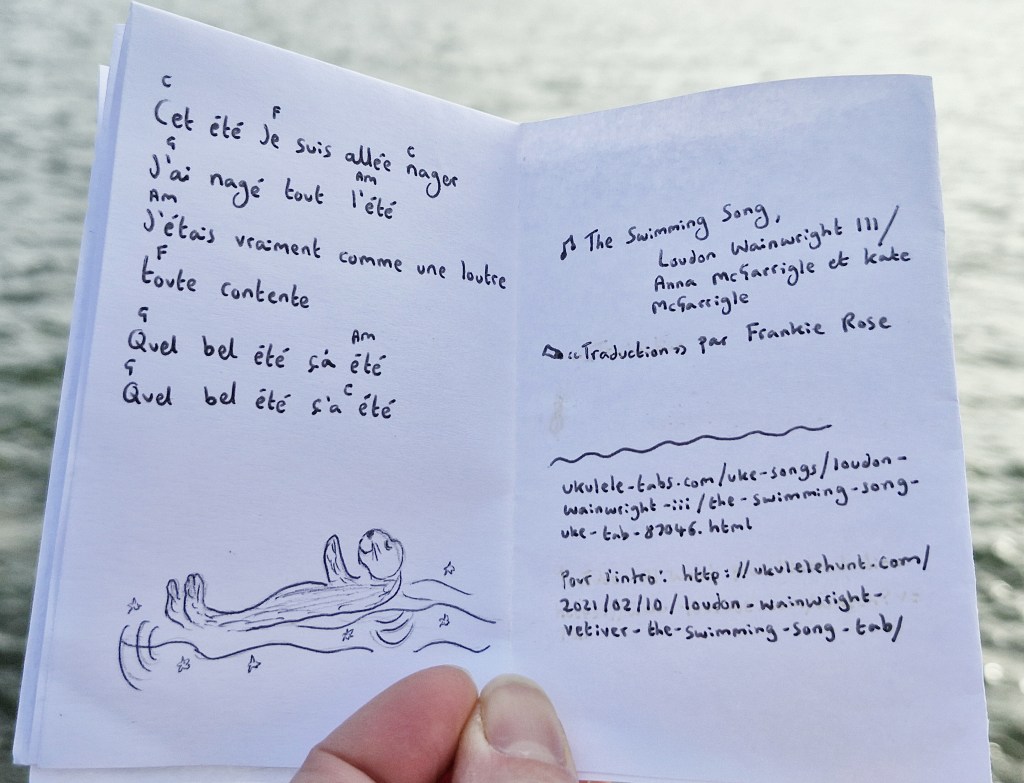 C F C
Cet été Je suis allée nager
G Am
J'ai nagé tout l'été
Am
J'étais vraiment comme une loutre
F
toute contente
G Am
Quel bel été ç'a été
G C
Quel bel été ç'a été
The Swimming Song,
Loudon Wainwright III/
Anna McGarrigle et Kate
McGarrigle
«Traduction» par Frankie Rose
ukulele-tabs.com/uke-songs/loudon-
wainwright-iii/the-swimming-song-
uke-tab-87046.html
Pour l'intro: http://ukulelehunt.com/
2021/02/10/loudon-wainwright-
vetiver-the-swimming-song-tab/